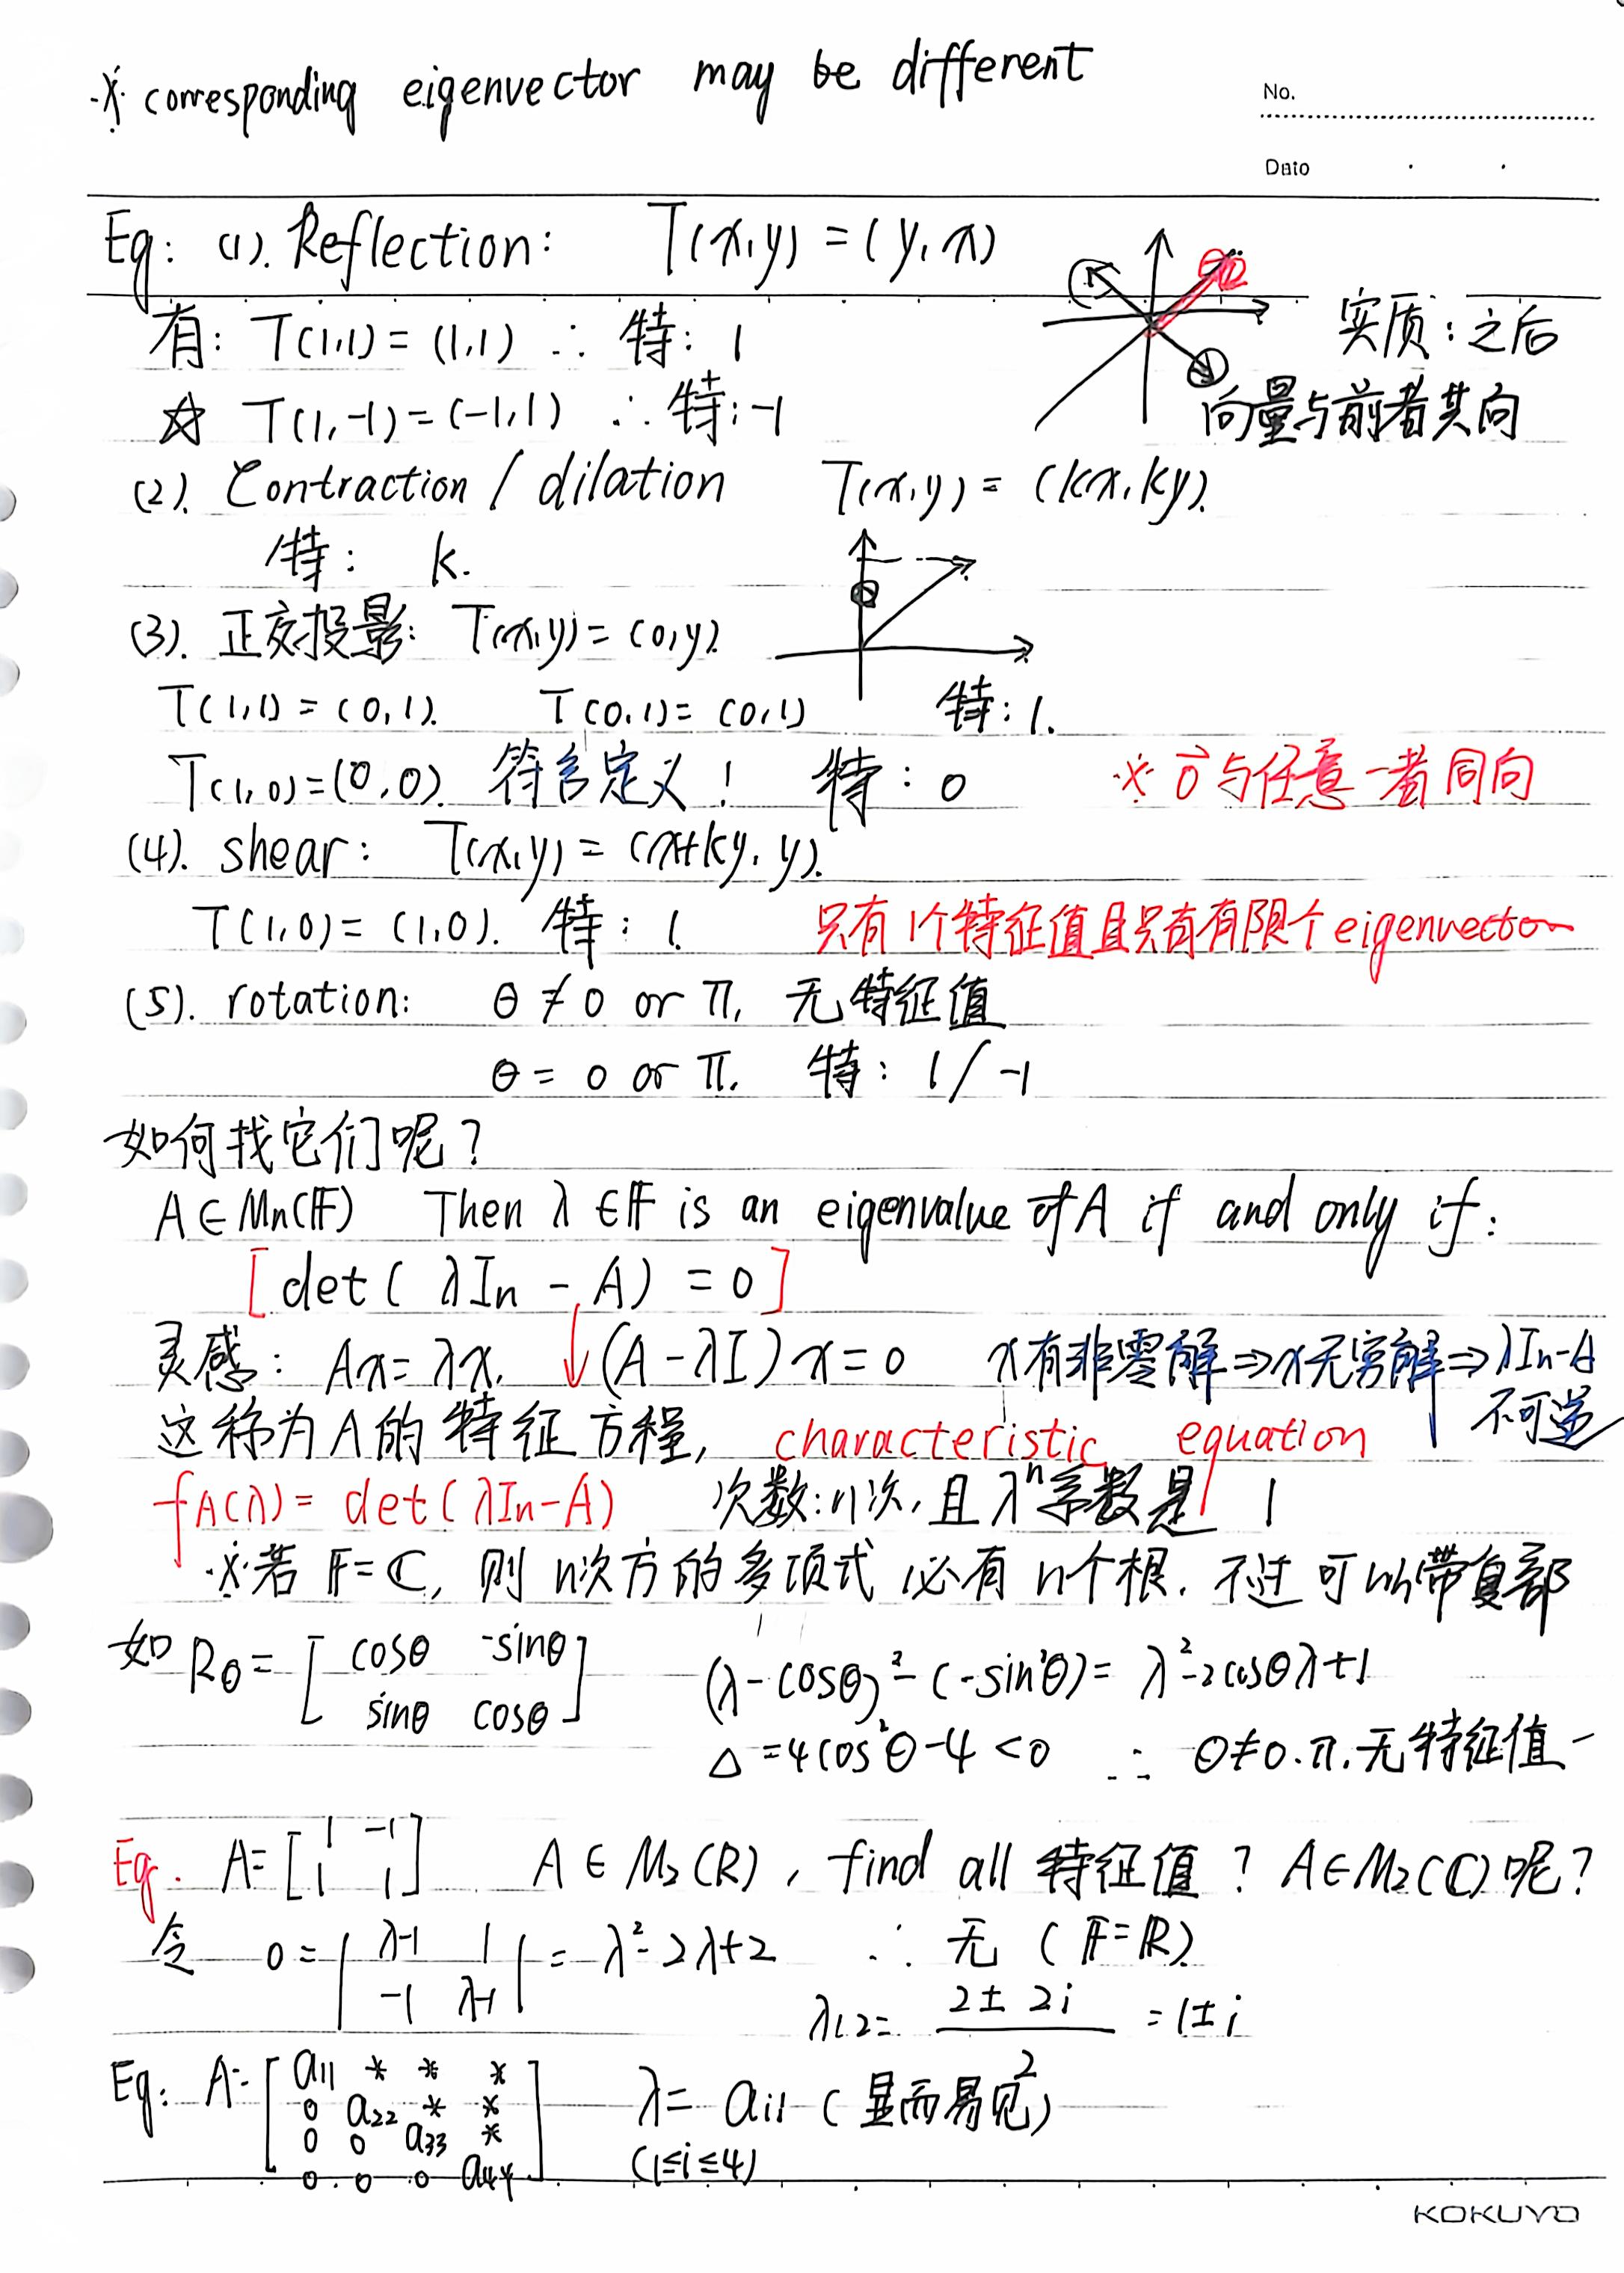 ※ corresponding eigenvector may be different
No.
Date
Eg: (1). Reflection: T(x,y) = (y,x)
有: T(1,1) = (1,1) ∴ 特: 1
实质:之后
☆ T(1,-1) = (-1,1) ∴ 特: -1
向量与前者共向
(2). Contraction / dilation T(x,y) = (kx,ky).
特: k.
(3). 正交投影: T(x,y) = (0,y).
T(1,1) = (0,1). T(0,1) = (0,1) 特: 1.
T(1,0) = (0,0). 符合定义! 特: 0 ※ 0⃗与任意一者同向
(4). shear: T(x,y) = (x+ky, y).
T(1,0) = (1,0). 特: 1. 只有1个特征值且只有有限个eigenvector
(5). rotation: θ ≠ 0 or π, 无特征值
θ = 0 or π. 特: 1 / -1
如何找它们呢?
A∈Mn(𝔽) Then λ∈𝔽 is an eigenvalue of A if and only if:
[det( λIn - A) = 0]
灵感: Ax = λx. ↓ (A - λI) x = 0 x有非零解⇒x无穷解⇒λIn-A
不可逆
这称为A的特征方程, characteristic equation
fA(λ) = det(λIn-A) 次数:n次,且λⁿ系数是 1
※若 𝔽=ℂ, 则 n次方的多项式必有n个根. 不过可以带复部
如 Rθ = [ cosθ -sinθ
sinθ cosθ ]
(λ-cosθ)² - (-sin²θ) = λ²-2cosθλ+1
Δ = 4cos²θ-4 < 0 ∴ θ≠0.π.无特征值
Eg. A = [ 1 -1
1 1 ]
A ∈ M₂(ℝ), find all 特征值? A∈M₂(ℂ)呢?
令 0 = | λ-1 1
-1 λ-1 | = λ²-2λ+2 ∴ 无 (𝔽=ℝ)
λ1,2 = 2 ± 2i / 2 = 1±i
Eg: A = [ a11 * * *
0 a22 * *
0 0 a33 *
0 0 0 a44 ]
λ = aii (显而易见)
(1≤i≤4)
KOKUYO